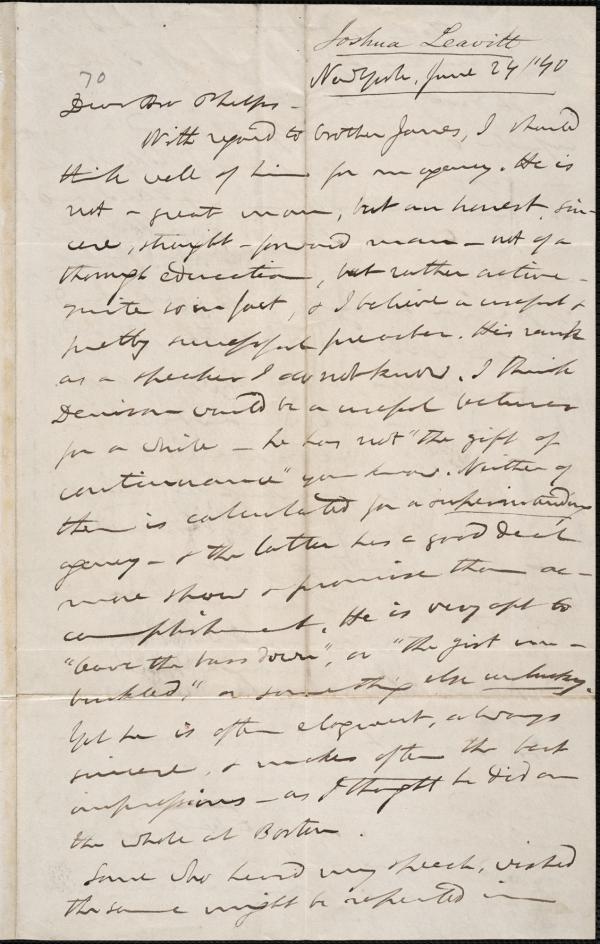 70
Joshua Leavitt
New York, June 24 / '40
Dear Bro Phelps -
With regard to brother Jones, I should
think well of him for an agency. He is
not a great man, but an honest, sin-
cere, straight-forward man - not of a
thorough education, but rather active -
quite so in fact, & I believe a useful &
pretty successful preacher. His rank
as a speaker I do not know. I think
Denison would be a useful
for a while - he has not "the gift of
continuance" you know. Neither of
them is calculated for a superintending
agency - & the latter has a good deal
more show & promise than ac-
complishment. He is very apt to
"leave the bars down", or "the girt un-
buckled," or something else unlucky.
Yet he is often eloquent, always
sincere, & makes often the best
impressions - as I thought he did on
the whole at Boston.
Some who heard my speech, wished
the same might be repeated in